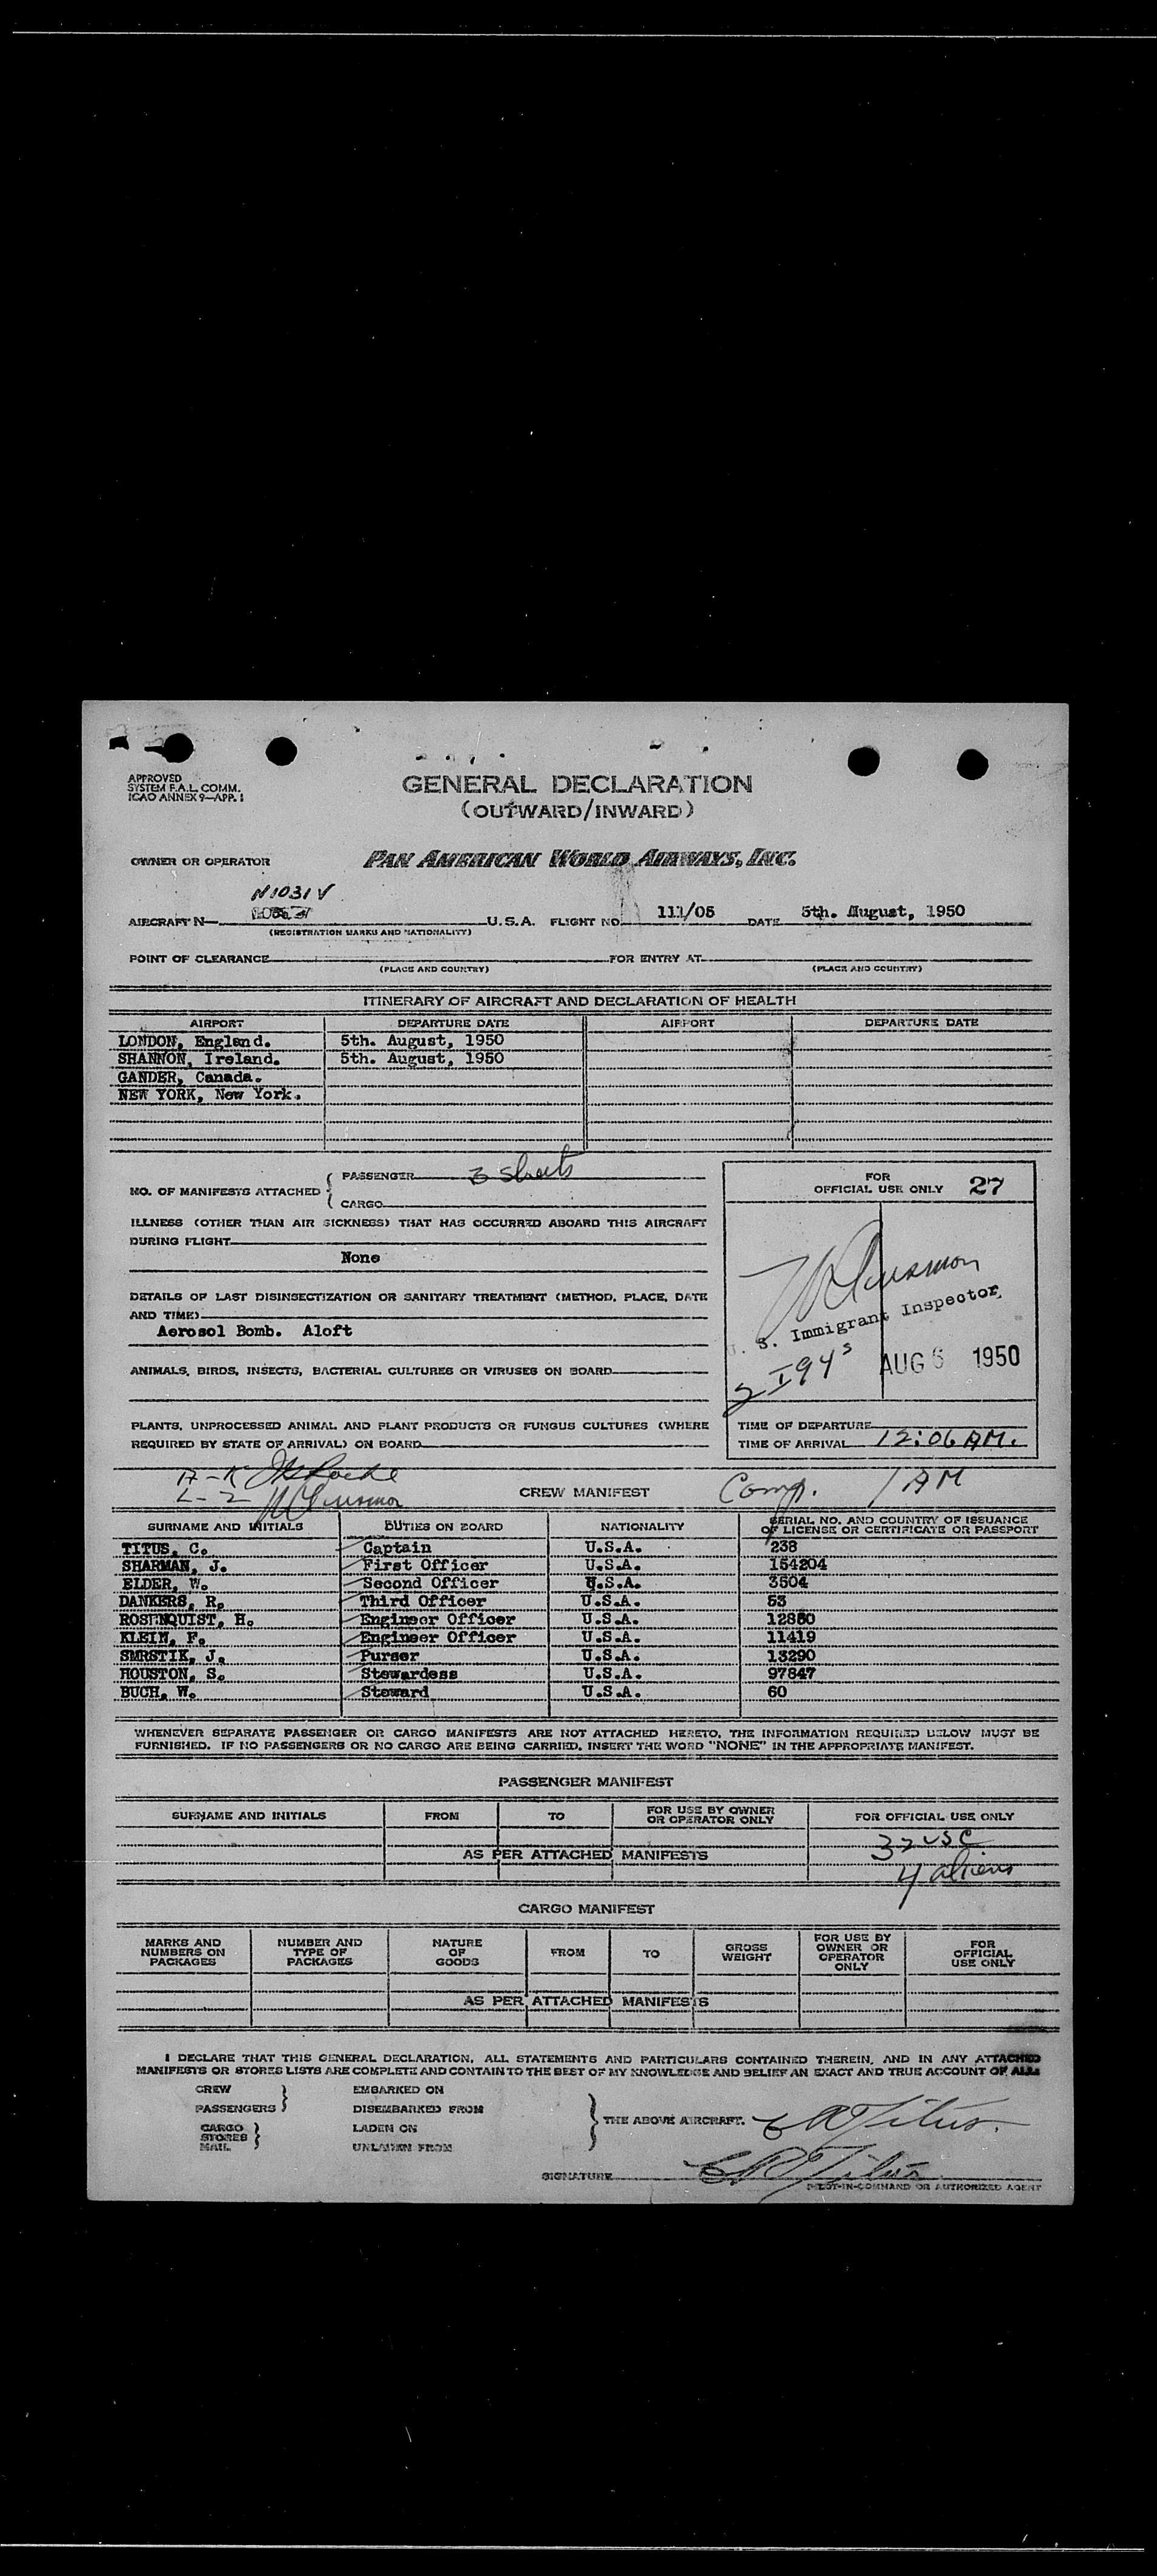 APPROVED
SYSTEM F.A.L. COMM.
ICAO ANNEX 9—APP. 1
GENERAL DECLARATION
(OUTWARD/INWARD)
OWNER OR OPERATOR PAN AMERICAN WORLD AIRWAYS, INC.
N1031V
AIRCRAFT N— U.S.A. FLIGHT NO. 111/05 DATE 5th. August, 1950
(REGISTRATION MARKS AND NATIONALITY)
POINT OF CLEARANCE FOR ENTRY AT
(PLACE AND COUNTRY) (PLACE AND COUNTRY)
ITINERARY OF AIRCRAFT AND DECLARATION OF HEALTH
AIRPORT DEPARTURE DATE AIRPORT DEPARTURE DATE
LONDON, England. 5th. August, 1950
SHANNON, Ireland. 5th. August, 1950
GANDER, Canada.
NEW YORK, New York.
NO. OF MANIFESTS ATTACHED { PASSENGER 3 sheets
CARGO
ILLNESS (OTHER THAN AIR SICKNESS) THAT HAS OCCURRED ABOARD THIS AIRCRAFT
DURING FLIGHT
None
DETAILS OF LAST DISINSECTIZATION OR SANITARY TREATMENT (METHOD, PLACE, DATE
AND TIME)
Aerosol Bomb. Aloft
ANIMALS, BIRDS, INSECTS, BACTERIAL CULTURES OR VIRUSES ON BOARD
PLANTS, UNPROCESSED ANIMAL AND PLANT PRODUCTS OR FUNGUS CULTURES (WHERE
REQUIRED BY STATE OF ARRIVAL) ON BOARD
FOR
OFFICIAL USE ONLY 27
U. S. Immigrant Inspector
2 I94s AUG 5 1950
TIME OF DEPARTURE
TIME OF ARRIVAL 12:06 AM.
A-K
L-Z
CREW MANIFEST Comp. 1 AM
SURNAME AND INITIALS DUTIES ON BOARD NATIONALITY SERIAL NO. AND COUNTRY OF ISSUANCE
OF LICENSE OR CERTIFICATE OR PASSPORT
TITUS, C. Captain U.S.A. 238
SHARMAN, J. First Officer U.S.A. 154204
ELDER, W. Second Officer U.S.A. 3504
DANKERS, R. Third Officer U.S.A. 53
ROSENQUIST, H. Engineer Officer U.S.A. 12850
KLEIN, F. Engineer Officer U.S.A. 11419
SMRSTIK, J. Purser U.S.A. 13290
HOUSTON, S. Stewardess U.S.A. 97847
BUCH, W. Steward U.S.A. 60
WHENEVER SEPARATE PASSENGER OR CARGO MANIFESTS ARE NOT ATTACHED HERETO, THE INFORMATION REQUIRED BELOW MUST BE
FURNISHED. IF NO PASSENGERS OR NO CARGO ARE BEING CARRIED, INSERT THE WORD "NONE" IN THE APPROPRIATE MANIFEST.
PASSENGER MANIFEST
SURNAME AND INITIALS FROM TO FOR USE BY OWNER
OR OPERATOR ONLY FOR OFFICIAL USE ONLY
32 USC
AS PER ATTACHED MANIFESTS
4 aliens
CARGO MANIFEST
MARKS AND
NUMBERS ON
PACKAGES NUMBER AND
TYPE OF
PACKAGES NATURE
OF
GOODS FROM TO GROSS
WEIGHT FOR USE BY
OWNER OR
OPERATOR
ONLY FOR
OFFICIAL
USE ONLY
AS PER ATTACHED MANIFESTS
I DECLARE THAT THIS GENERAL DECLARATION, ALL STATEMENTS AND PARTICULARS CONTAINED THEREIN, AND IN ANY ATTACHED
MANIFESTS OR STORES LISTS ARE COMPLETE AND CONTAIN TO THE BEST OF MY KNOWLEDGE AND BELIEF AN EXACT AND TRUE ACCOUNT OF ALL:
CREW EMBARKED ON
PASSENGERS DISEMBARKED FROM
CARGO LADEN ON
STORES
MAIL UNLADEN FROM
THE ABOVE AIRCRAFT. C A Titus.
SIGNATURE C A Titus
PILOT-IN-COMMAND OR AUTHORIZED AGENT